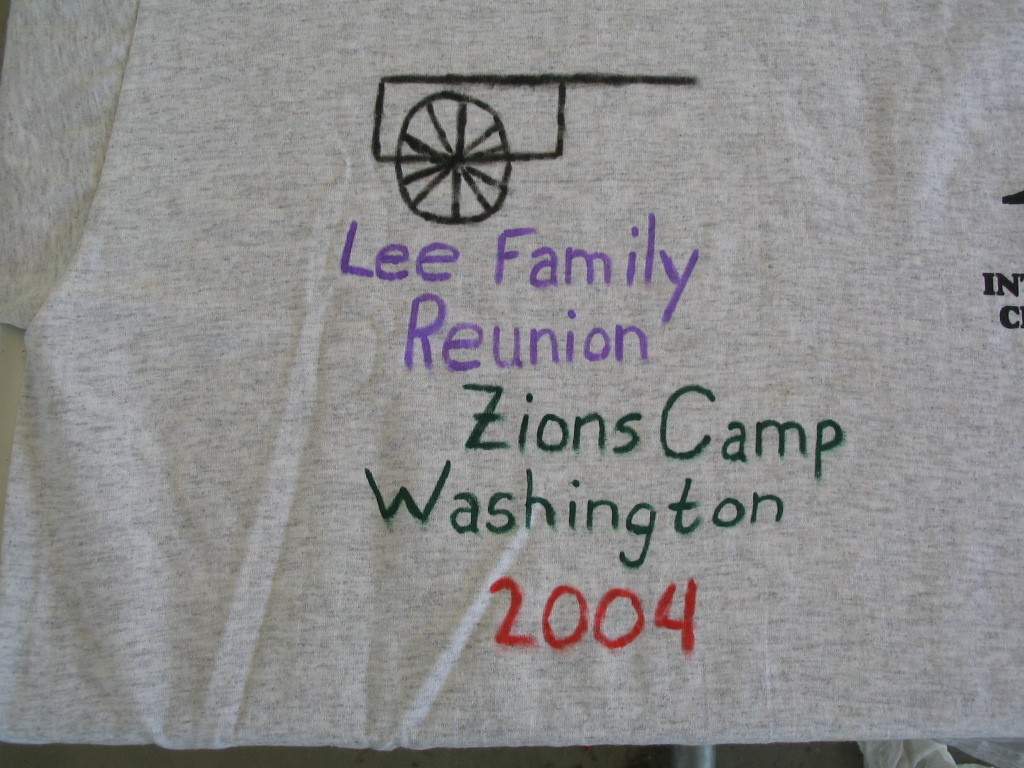 Lee Family
Reunion
Zions Camp
Washington
2004